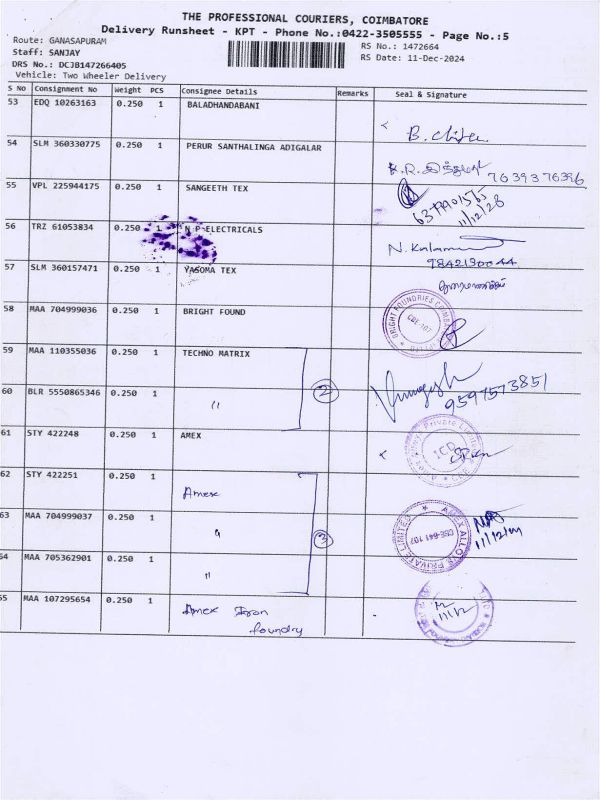 THE PROFESSIONAL COURIERS, COIMBATORE
Delivery Runsheet - KPT - Phone No.:0422-3505555 - Page No.:5
Route: GANASAPURAM
Staff: SANJAY
DRS No.: DCJB147266405
Vehicle: Two Wheeler Delivery
RS No.: 1472664
RS Date: 11-Dec-2024
S No Consignment No Weight PCS Consignee Details Remarks Seal & Signature
53 EDQ 10263163 0.250 1 BALADHANDABANI
54 SLM 360330775 0.250 1 PERUR SANTHALINGA ADIGALAR
7639376396
55 VPL 225944175 0.250 1 SANGEETH TEX
56 TRZ 61053834 0.250 1 N P ELECTRICALS
57 SLM 360157471 0.250 1 YASOMA TEX
58 MAA 704999036 0.250 1 BRIGHT FOUND
59 MAA 110355036 0.250 1 TECHNO MATRIX
2
60 BLR 5550865346 0.250 1 "
9597573851
61 STY 422248 0.250 1 AMEX
62 STY 422251 0.250 1 Amex
63 MAA 704999037 0.250 1 "
3
AMEX ALLOYS PRIVATE LIMITED
CBE-641 107
64 MAA 705362901 0.250 1 "
65 MAA 107295654 0.250 1 Amex Iron
foundry